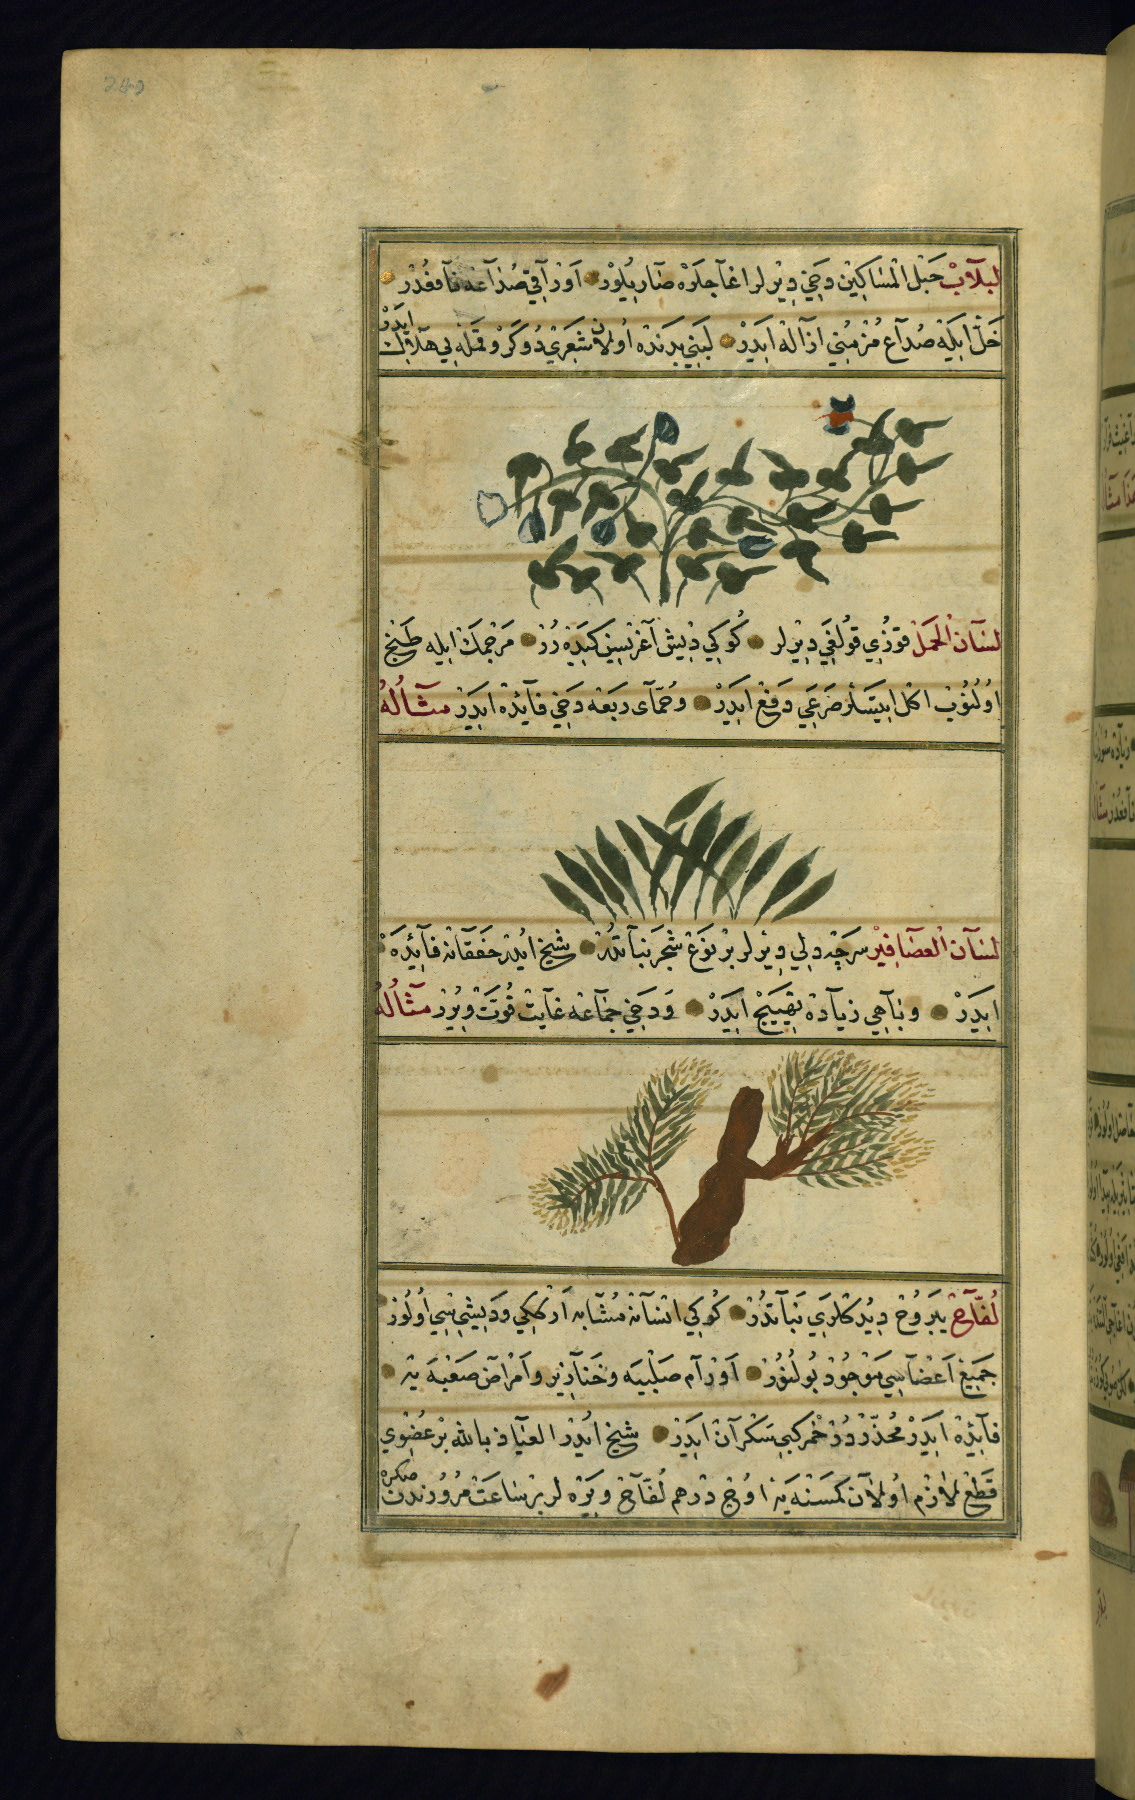 لبلاب حبل المساكين دخي ديرلر اغاجلره صاريلور اوراقي صداعه نافعدر
خل ايله صداع مزمني ازاله ايدر لبني بدنده اولان شعري دوكر و قمله يي هلاك ايدر
لسان الحمل قوزي قولغي ديرلر كوكي ديش آغريسين كيديرر مرجمك ايله طبخ
اولنوب اكل ايتسلر صرعي دفع ايدر و حماى ربعه دخي فائده ايدر مثاله
لسان العصافير سرچه دلي ديرلر بر نوع شجر نباتدر شيخ ايدر خفقانه فائده
ايدر و باهي زياده تهييج ايدر و دخي جماعه غايت قوت ويرر مثاله
لفاح يبروح ديدكلري نباتدر كوكي انسانه مشابه ارككي و ديشيسي اولور
جميع اعضاسي موجود بولنور اورام صلبيه و خنازير و امراض صعبه يه
فائده ايدر مخدردر خمر كبي سكران ايدر شيخ ايدر العياذ بالله بر عضوي
قطع لازم اولان كمسنه يه اوچ درهم لفاح ويره لر بر ساعت مرورندن صكره
240